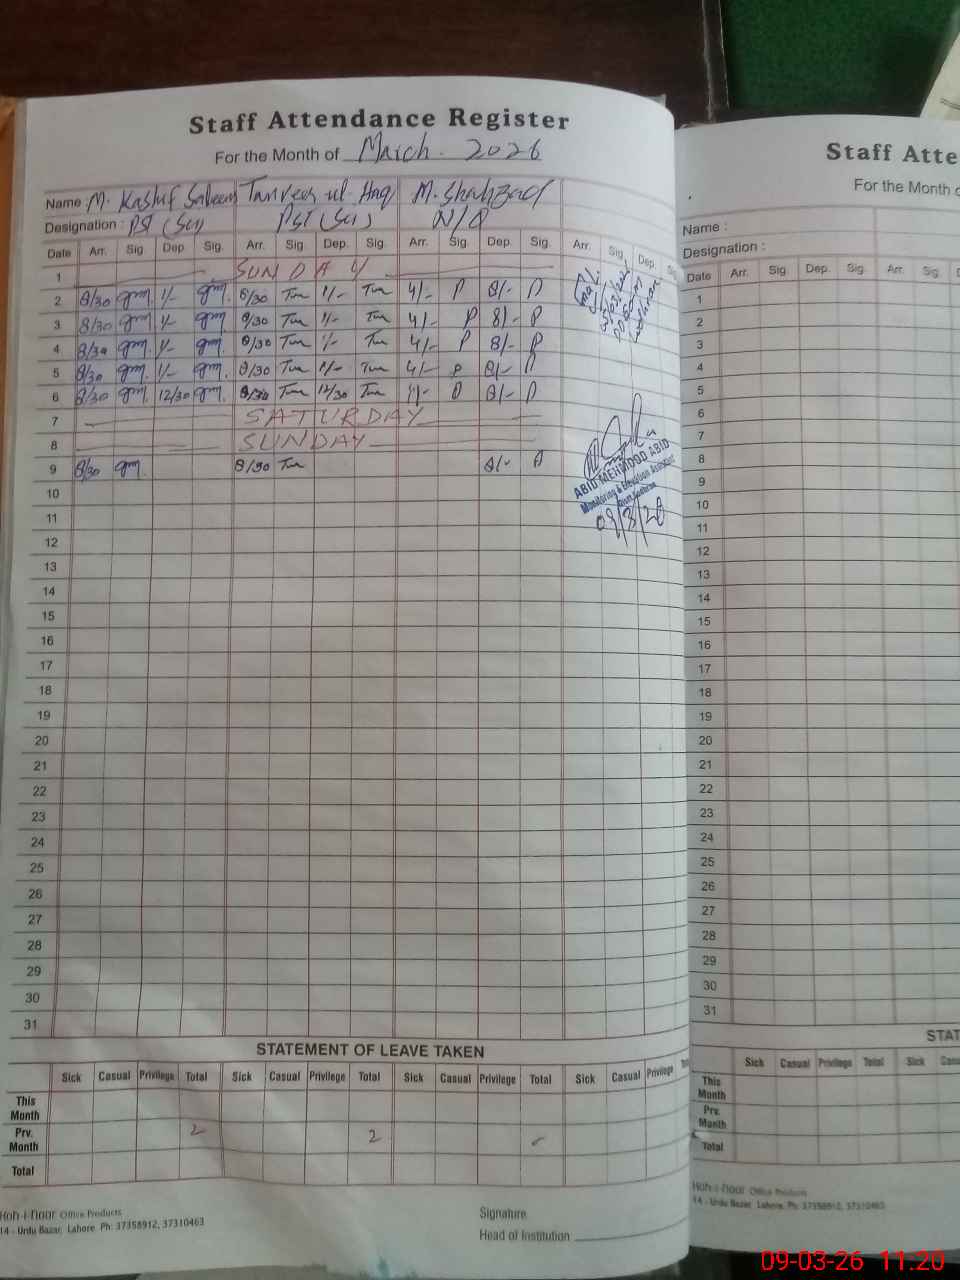 Staff Attendance Register
For the Month of March. 2026
Name : M. Kashif Saleem Tanveer ul Haq M. Shahzad
Designation : PST (Sci) PST (Sci) N/Q
Date Arr. Sig. Dep. Sig. Arr. Sig. Dep. Sig. Arr. Sig. Dep. Sig. Arr. Sig. Dep. Sig.
1 SUNDAY
2 8/30 1/- 8/30 1/- 4/- P 8/- P
3 8/30 1/- 8/30 1/- 4/- P 8/- P
4 8/30 1/- 8/30 1/- 4/- P 8/- P
5 8/30 1/- 8/30 1/- 4/- P 8/- P
6 8/30 12/30 8/30 12/30 4/- P 8/- P
7 SATURDAY
8 SUNDAY
9 8/30 8/30 8/- P
ABID MEHMOOD ABID
Monitoring & Evaluation Assistant
09/3/26
10
11
12
13
14
15
16
17
18
19
20
21
22
23
24
25
26
27
28
29
30
31
STATEMENT OF LEAVE TAKEN
Sick Casual Privilege Total Sick Casual Privilege Total Sick Casual Privilege Total Sick Casual Privilege
This Month
Prv. Month 2 2 -
Total
Koh-i-noor Office Products
14 - Urdu Bazar, Lahore Ph: 37358912, 37310463
Signature
Head of Institution
Staff Atte
For the Month o
Name :
Designation :
Date Arr. Sig. Dep. Sig. Arr. Sig. D
1
2
3
4
5
6
7
8
9
10
11
12
13
14
15
16
17
18
19
20
21
22
23
24
25
26
27
28
29
30
31
STAT
Sick Casual Privilege Total Sick Casu
This Month
Prv. Month
Total
Koh-i-noor Office Products
14 - Urdu Bazar, Lahore Ph: 37358912, 37310463
09-03-26 11:20